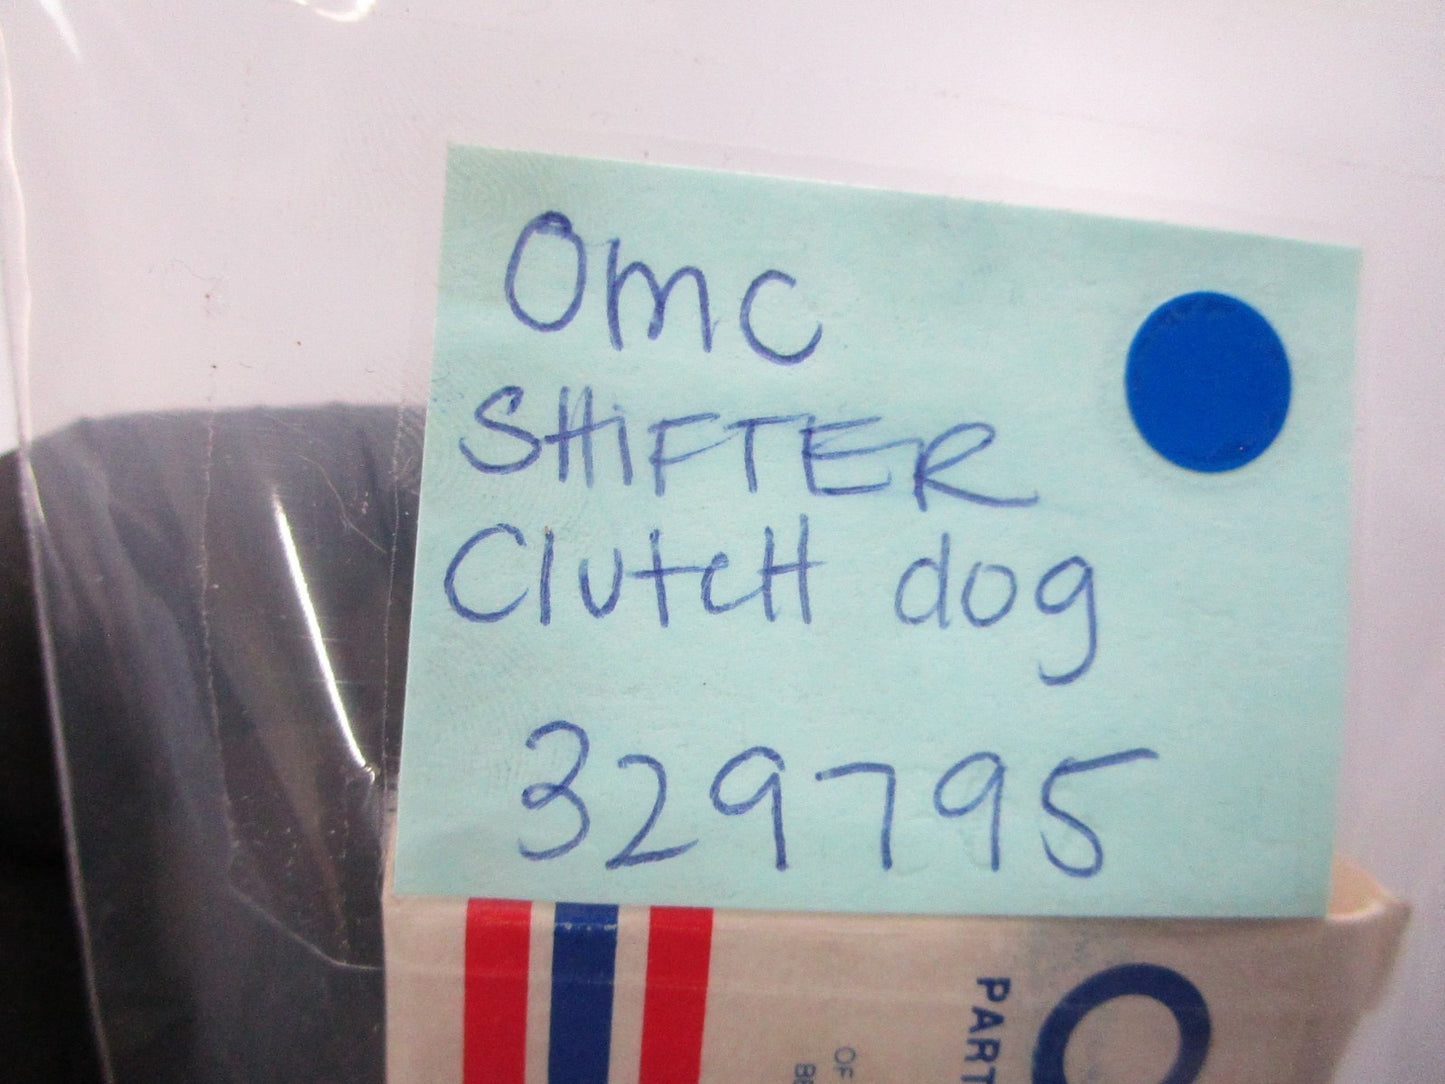 OMC
SHiFTER
ClutcH dog
329795
PART
OF